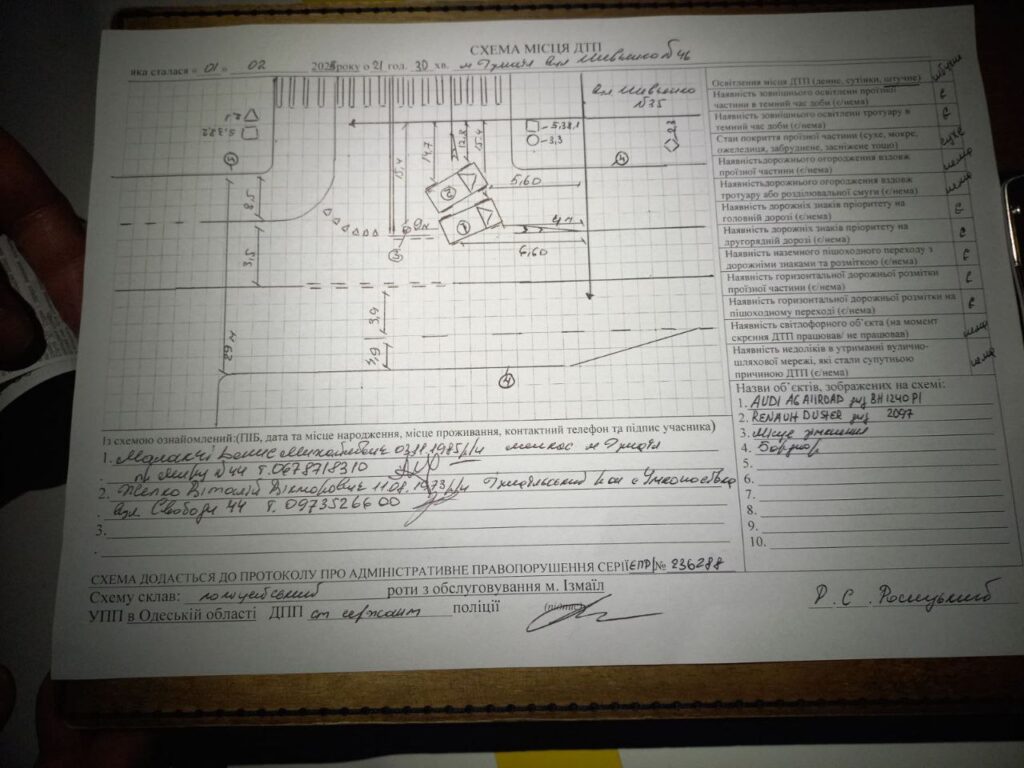 СХЕМА МІСЦЯ ДТП
яка сталася « 01 » 02 року о 21 год. 30 хв. м
Вул Шевченко
N35
△ 2,1
□ 5,382
5
□ - 5,38,1
○ - 3,3
2,3
4
15,4
14,7
12,8
15,4
2
5,60
1
4 м
6,60
8,5
3,5
3
3,9
3,9
29 м
4
Освітлення місця ДТП (денне, сутінки, штучне) штучне
Наявність зовнішнього освітлені проїзної частини в темний час доби (є/нема) є
Наявність зовнішнього освітлені тротуару в темний час доби (є/нема) є
Стан покриття проїзної частини (сухе, мокре, ожеледиця, забруднене, засніжене тощо) сухе
Наявністьдорожнього огородження вздовж проїзної частини (є/нема) нема
Наявністьдорожнього огородження вздовж тротуару або розділювальної смуги (є/нема) нема
Наявність дорожніх знаків пріоритету на головній дорозі (є/нема) є
Наявність дорожніх знаків пріоритету на другорядній дорозі (є/нема) є
Наявність наземного пішоходного переходу з дорожніми знаками та розміткою (є/нема) є
Наявність горизонтальної дорожньої розмітки проїзної частини (є/нема) є
Наявність горизонтальної дорожньої розмітки на пішоходному переході (є/нема) є
Наявність світлофорного об`єкта (на момент скрєння ДТП працював/ не працював) нема
Наявність недоліків в утриманні вулично-шляхової мережі, які стали супутньою причиною ДТП (є/нема) нема
Назви об`єктів, зображених на схемі:
1. AUDI A6 AllROAD днз BH1240PI
2. RENAULT DUSTER днз 2097
3. Місце зіткнення
4. Бордюр
5.
6.
7.
8.
9.
10.
Із схемою ознайомлений:(ПІБ, дата та місце народження, місце проживання, контактний телефон та підпис учасника)
1. Денис Михайлович 03.11.1985 р/н м
пр. Миру N44 т. 0678718310
2. Віталій Вікторович 11.08.1973 р/н
вул. Свободи 44 т. 0973526600
3.
СХЕМА ДОДАЄТЬСЯ ДО ПРОТОКОЛУ ПРО АДМІНІСТРАТИВНЕ ПРАВОПОРУШЕННЯ СЕРІЇ ЕПР1 № 236288
Схему склав: поліцейський роти з обслуговування м. Ізмаїл
УПП в Одеській області ДПП ст сержант поліції (підпис) Р. С.